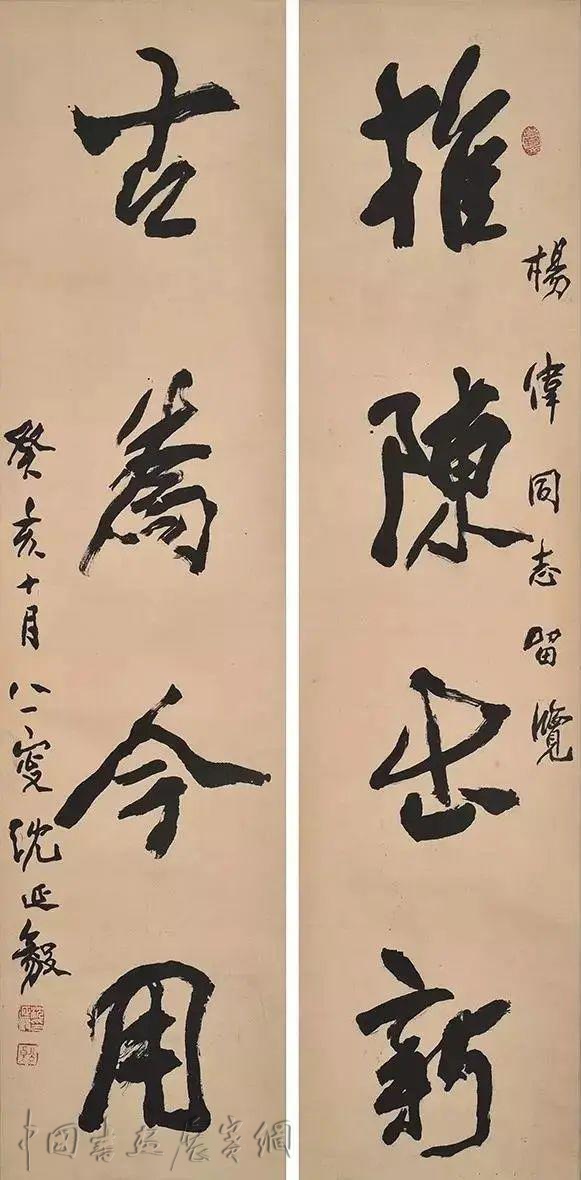 楊偉同志留覽
推陳出新
古為今用
癸亥十月八一叟沈延毅
中國書藝展賽網